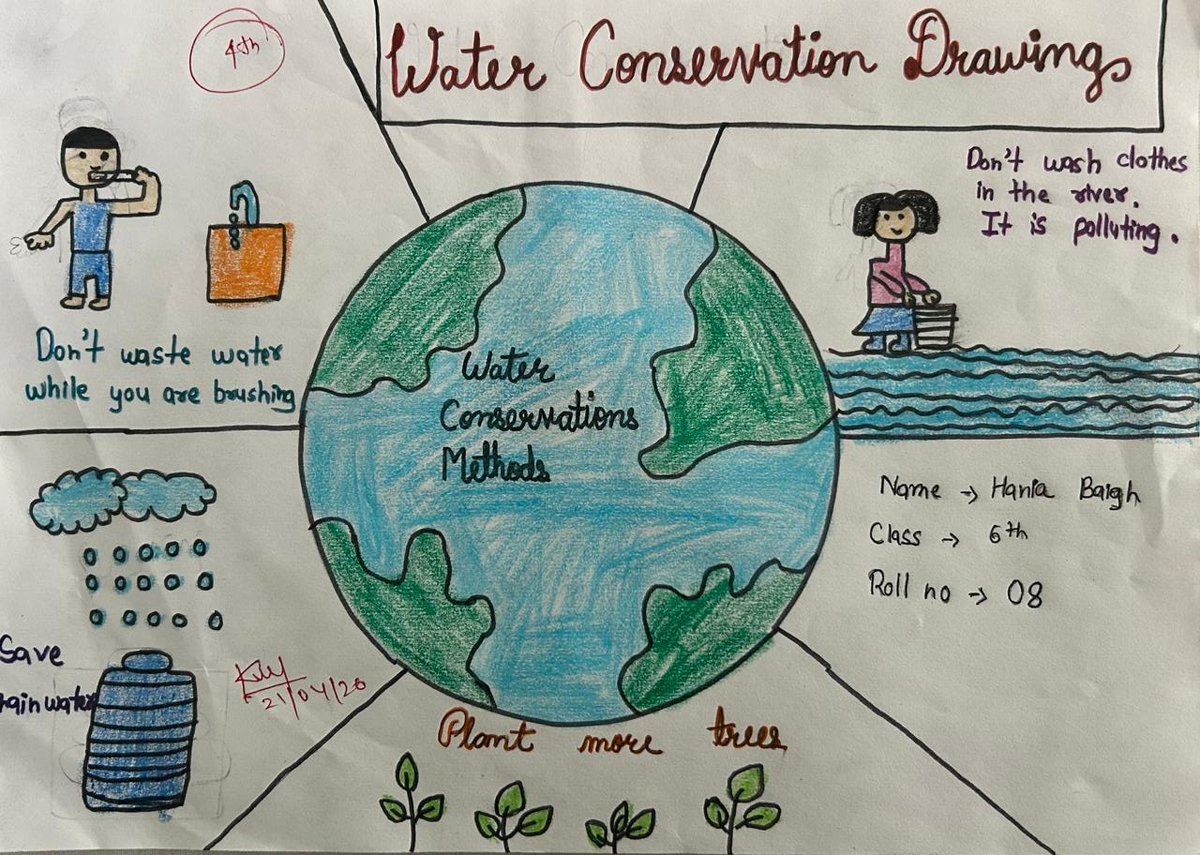 4th
Water Conservation Drawing
Don't waste water
while you are brushing
Don't wash clothes
in the river.
It is polluting.
Water
Conservations
Methods
Name → Hania Baigh
Class → 6th
Roll no → 08
Save
rain water
21/04/26
Plant more trees